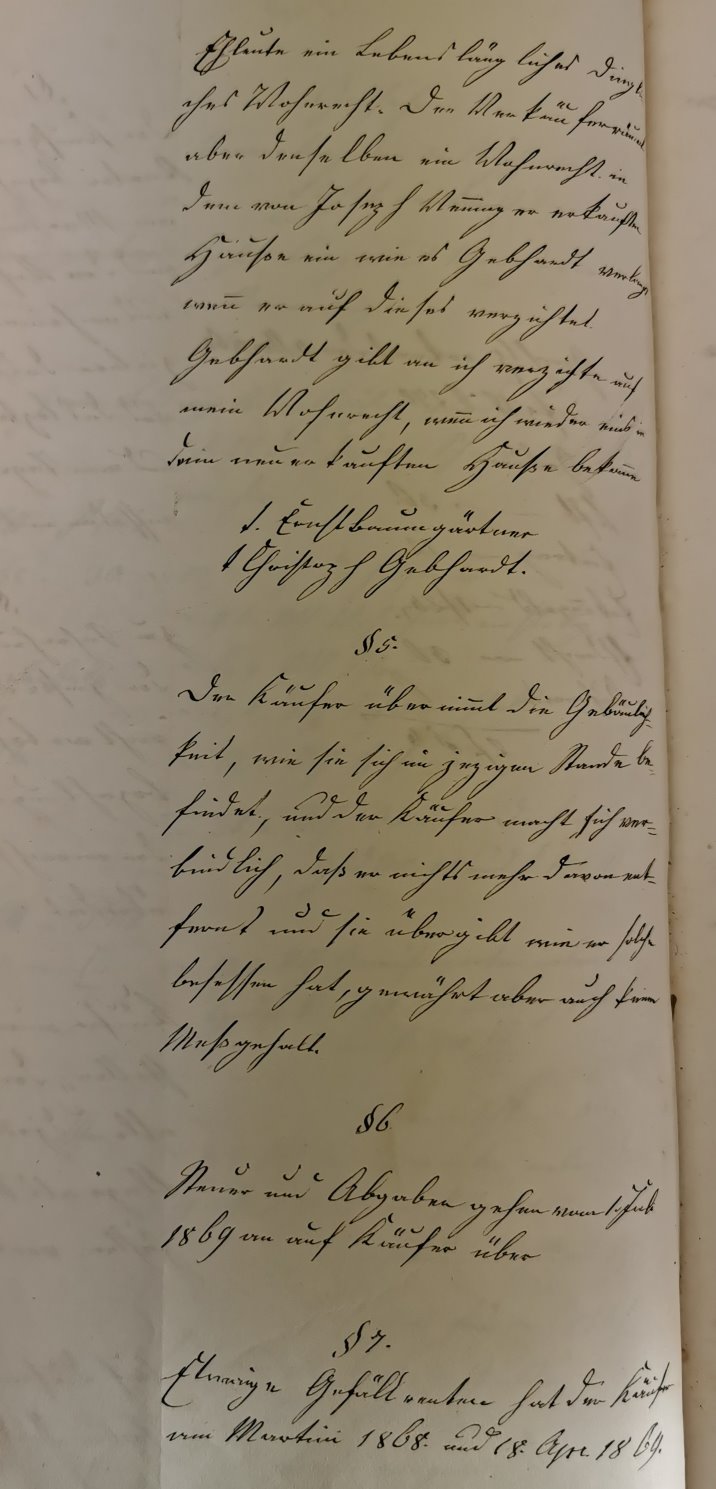 Eheleute ein Lebenslängliches dingli-
ches Wohnrecht. Der Verkäufer räumt
aber denselben ein Wohnrecht in
dem von Joseph Venninger erkauften
Hauße ein wie es Gebhardt verlangt
wenn er auf dieses verzichtet.
Gebhardt gibt an ich verzichte auf
mein Wohnrecht, wenn ich wieder eins in
dem neuerkauften Hauße bekomme
t. Ernst Baumgärtner
t Christoph Gebhardt.
§ 5.
Der Käufer übernimmt die Gebäulich-
keit, wie sie sich im jezigen Stande be-
findet, und der Käufer macht sich ver-
bindlich, daß er nichts mehr davon ent-
fernt und sie übergibt wie er solche
besessen hat, gewährt aber auch keinen
Meßgehalt.
§ 6
Steuer und Abgaben gehen vom 1. Juli
1869 an auf Käufer über
§ 7.
Etwaige Gefällrenten hat der Käufer
am Martini 1868. und 18. Apr. 1869.